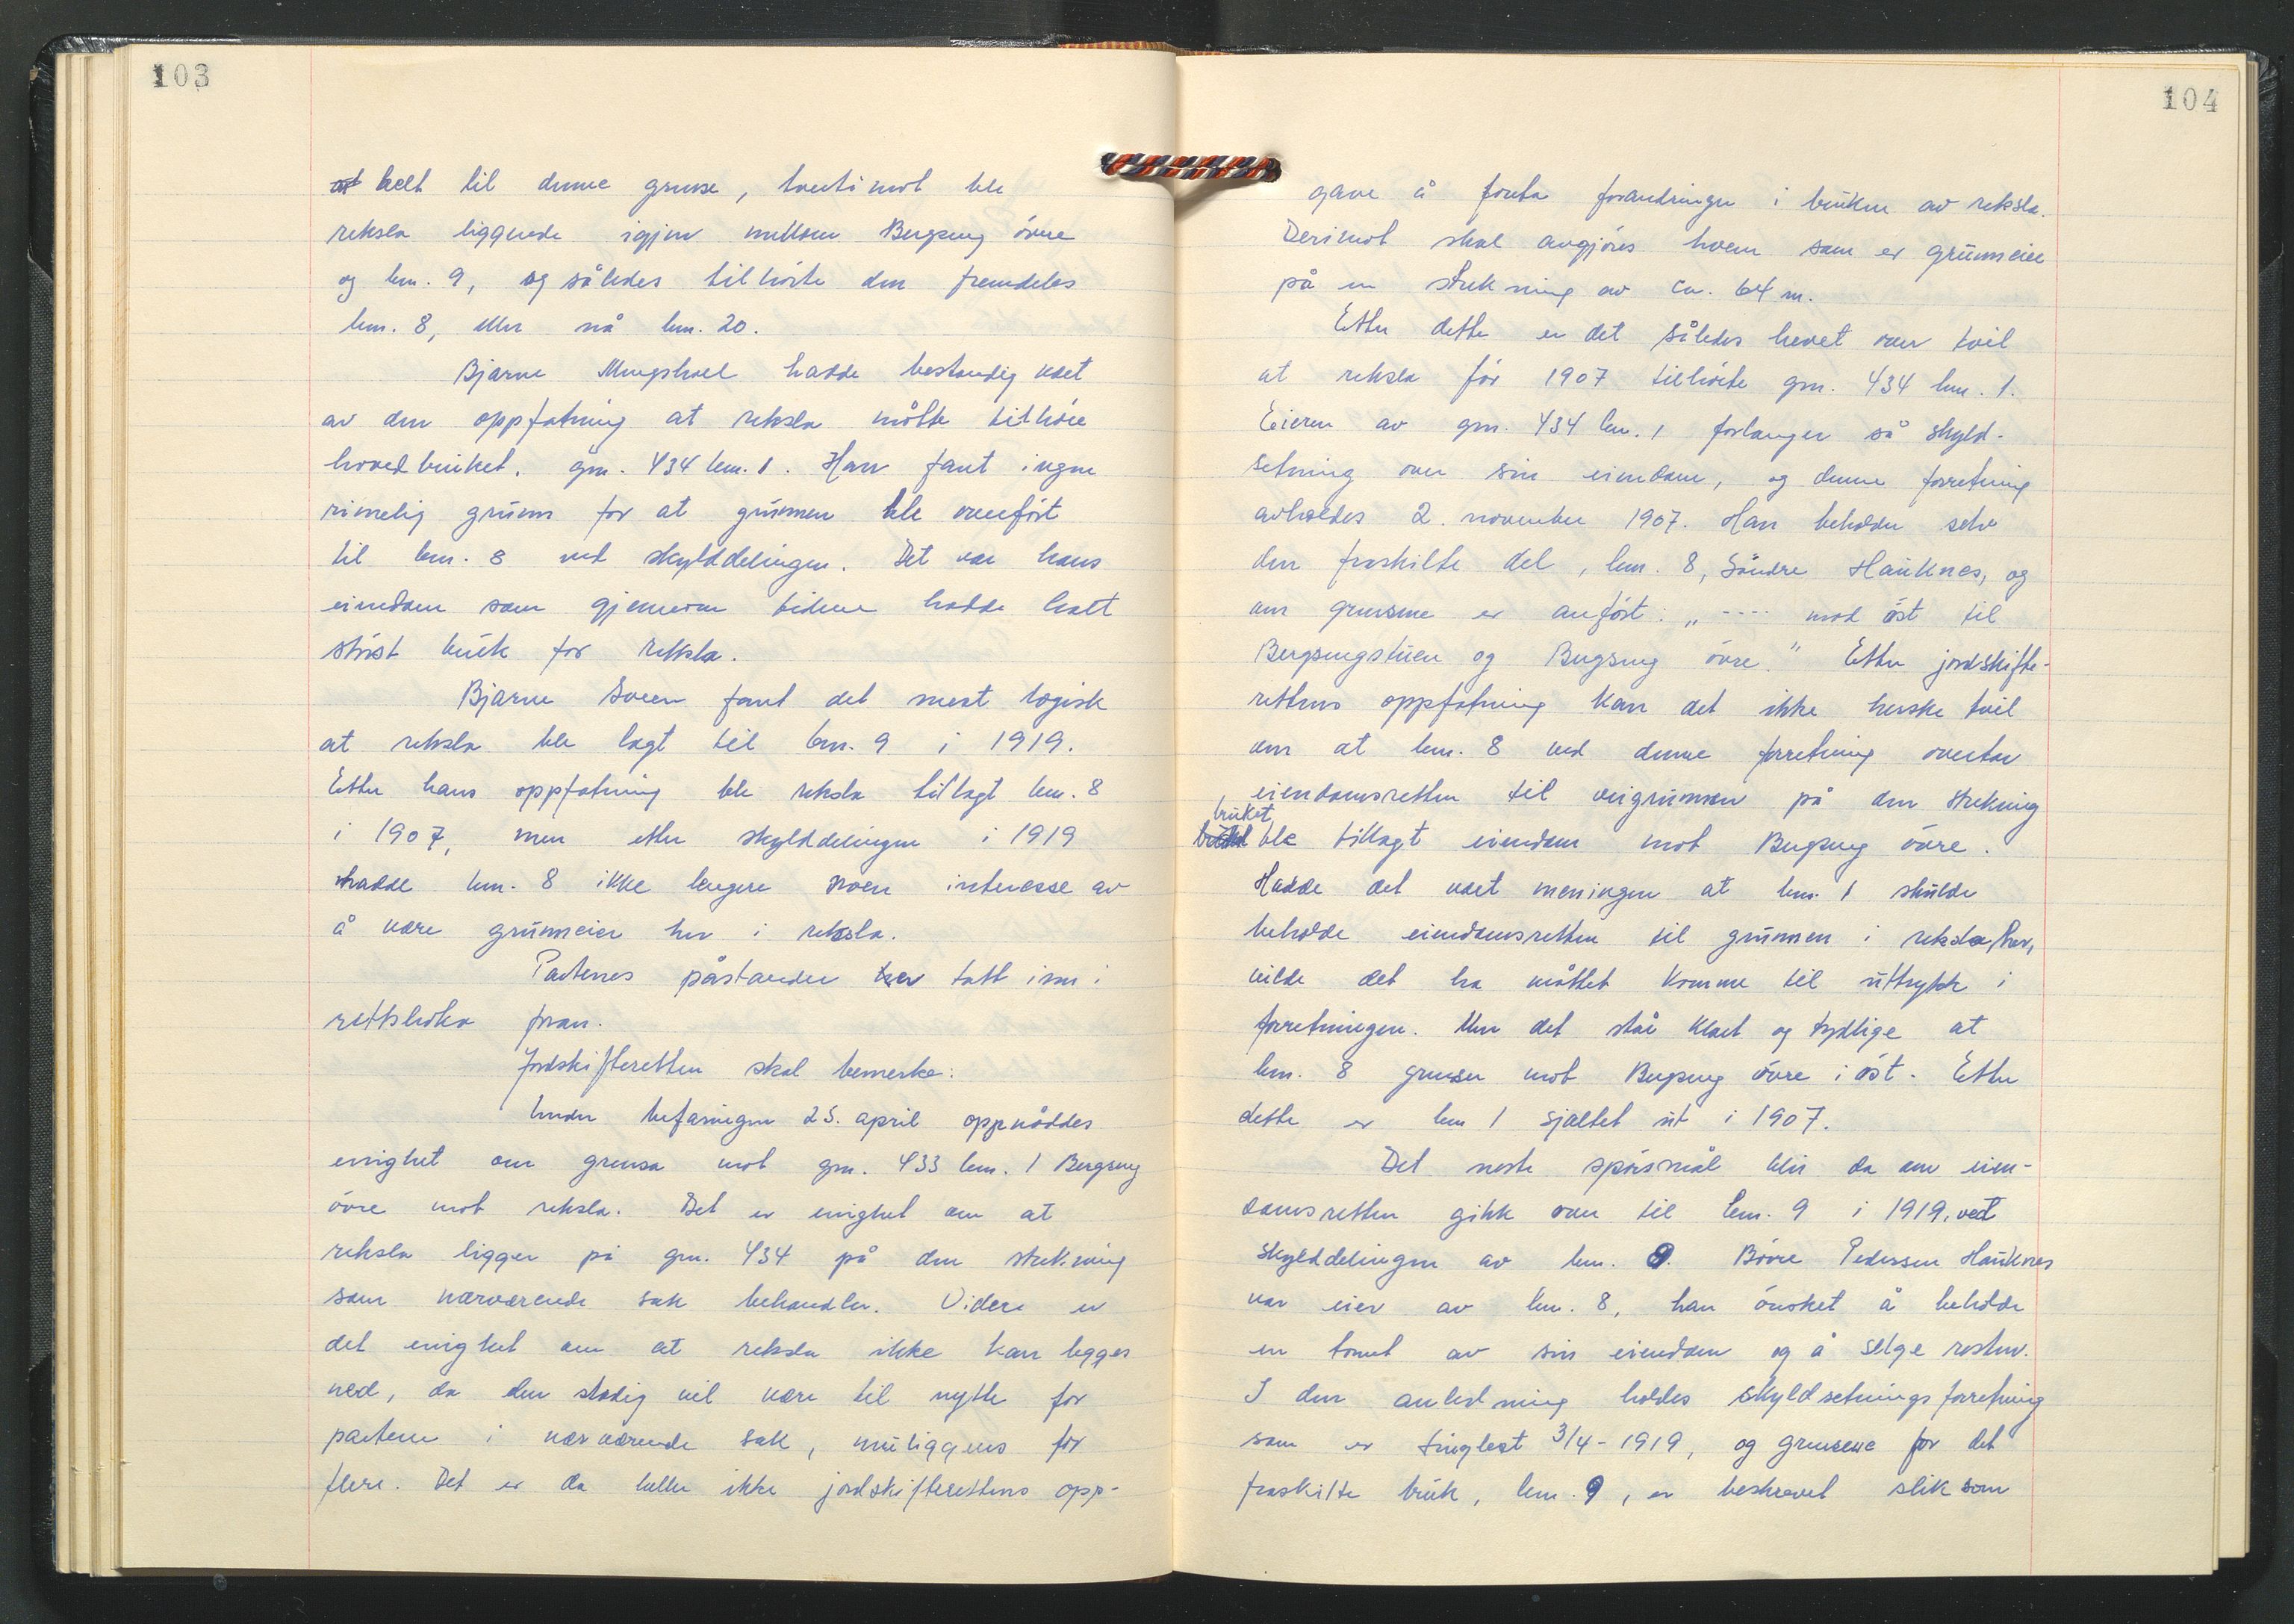 103
helt til denne grense, tvertimot ble
reksla liggende igjen mellom Bergseng övre
og bnr. 9, og således tilhörte den fremdeles
bnr. 8, eller nå bnr. 20.
Bjarne hadde bestandig vært
av den oppfatning at reksla måtte tilhöre
hovedbruket, gnr. 434 bnr. 1. Han fant ingen
rimelig grunn for at grunnen ble overfört
til bnr. 8 ved skylddelingen. Det var hans
eiendom som gjennom tidene hadde hatt
störst bruk for reksla.
Bjarne Sveen fant det mest logisk
at reksla ble lagt til bnr. 9 i 1919.
Etter hans oppfatning ble reksla tillagt bnr. 8
i 1907, men etter skylddelingen i 1919
hadde bnr. 8 ikke lengere noen interesse av
å være grunneier her i reksla.
Partenes påstander er tatt inn i
rettsboka foran.
Jordskifteretten skal bemerke:
Under befaringen 25. april oppnåddes
enighet om grensa mot gnr. 433 bnr. 1 Bergseng
övre mot reksla. Det er enighet om at
reksla ligger på gnr. 434 på den strekning
som nærværende sak behandler. Videre er
det enighet om at reksla ikke kan legges
ned, da den stadig vil være til nytte for
partene i nærværende sak, muliggens for
flere. Det er da heller ikke jordskifterettens opp-
104
gave å foreta forandringer i bruken av reksla.
Derimot skal avgjöres hvem som er grunneier
på en strekning av ca. 64 m.
Etter dette er det således hevet over tvil
at reksla för 1907 tilhörte gnr. 434 bnr. 1.
Eieren av gnr. 434 bnr. 1 forlanger så skyld-
setning over sin eiendom, og denne forretning
avholdes 2. november 1907. Han beholder selv
den fraskilte del, bnr. 8, Söndre Hauknes, og
om grensene er anfört: „ ---- mod öst til
Bergsengstuen og Bergseng övre." Etter jordskifte-
rettens oppfatning kan det ikke herske tvil
om at bnr. 8 ved denne forretning overtar
eiendomsretten til veigrunnen på den strekning
bruket ble tillagt eiendom mot Bergseng övre.
Hadde det vært meningen at bnr. 1 skulde
beholde eiendomsretten til grunnen i reksla her,
vilde det ha måttet komme til uttrykk i
forretningen. Men det står klart og tydlige at
bnr. 8 grenser mot Bergseng övre i öst. Etter
dette er bnr 1 sjaltet ut i 1907.
Det neste spörsmål blir da om eien-
domsretten gikk over til bnr. 9 i 1919, ved
skylddelingen av bnr. 9. Börre Pedersen Hauknes
var eier av bnr. 8, han önsket å beholde
en tomt av sin eiendom og å selge resten.
I den anledning holdes skyldsetningsforretning
som er tinglest 3/4-1919, og grensene for det
fraskilte bruk, bnr. 9, er beskrevet slik som